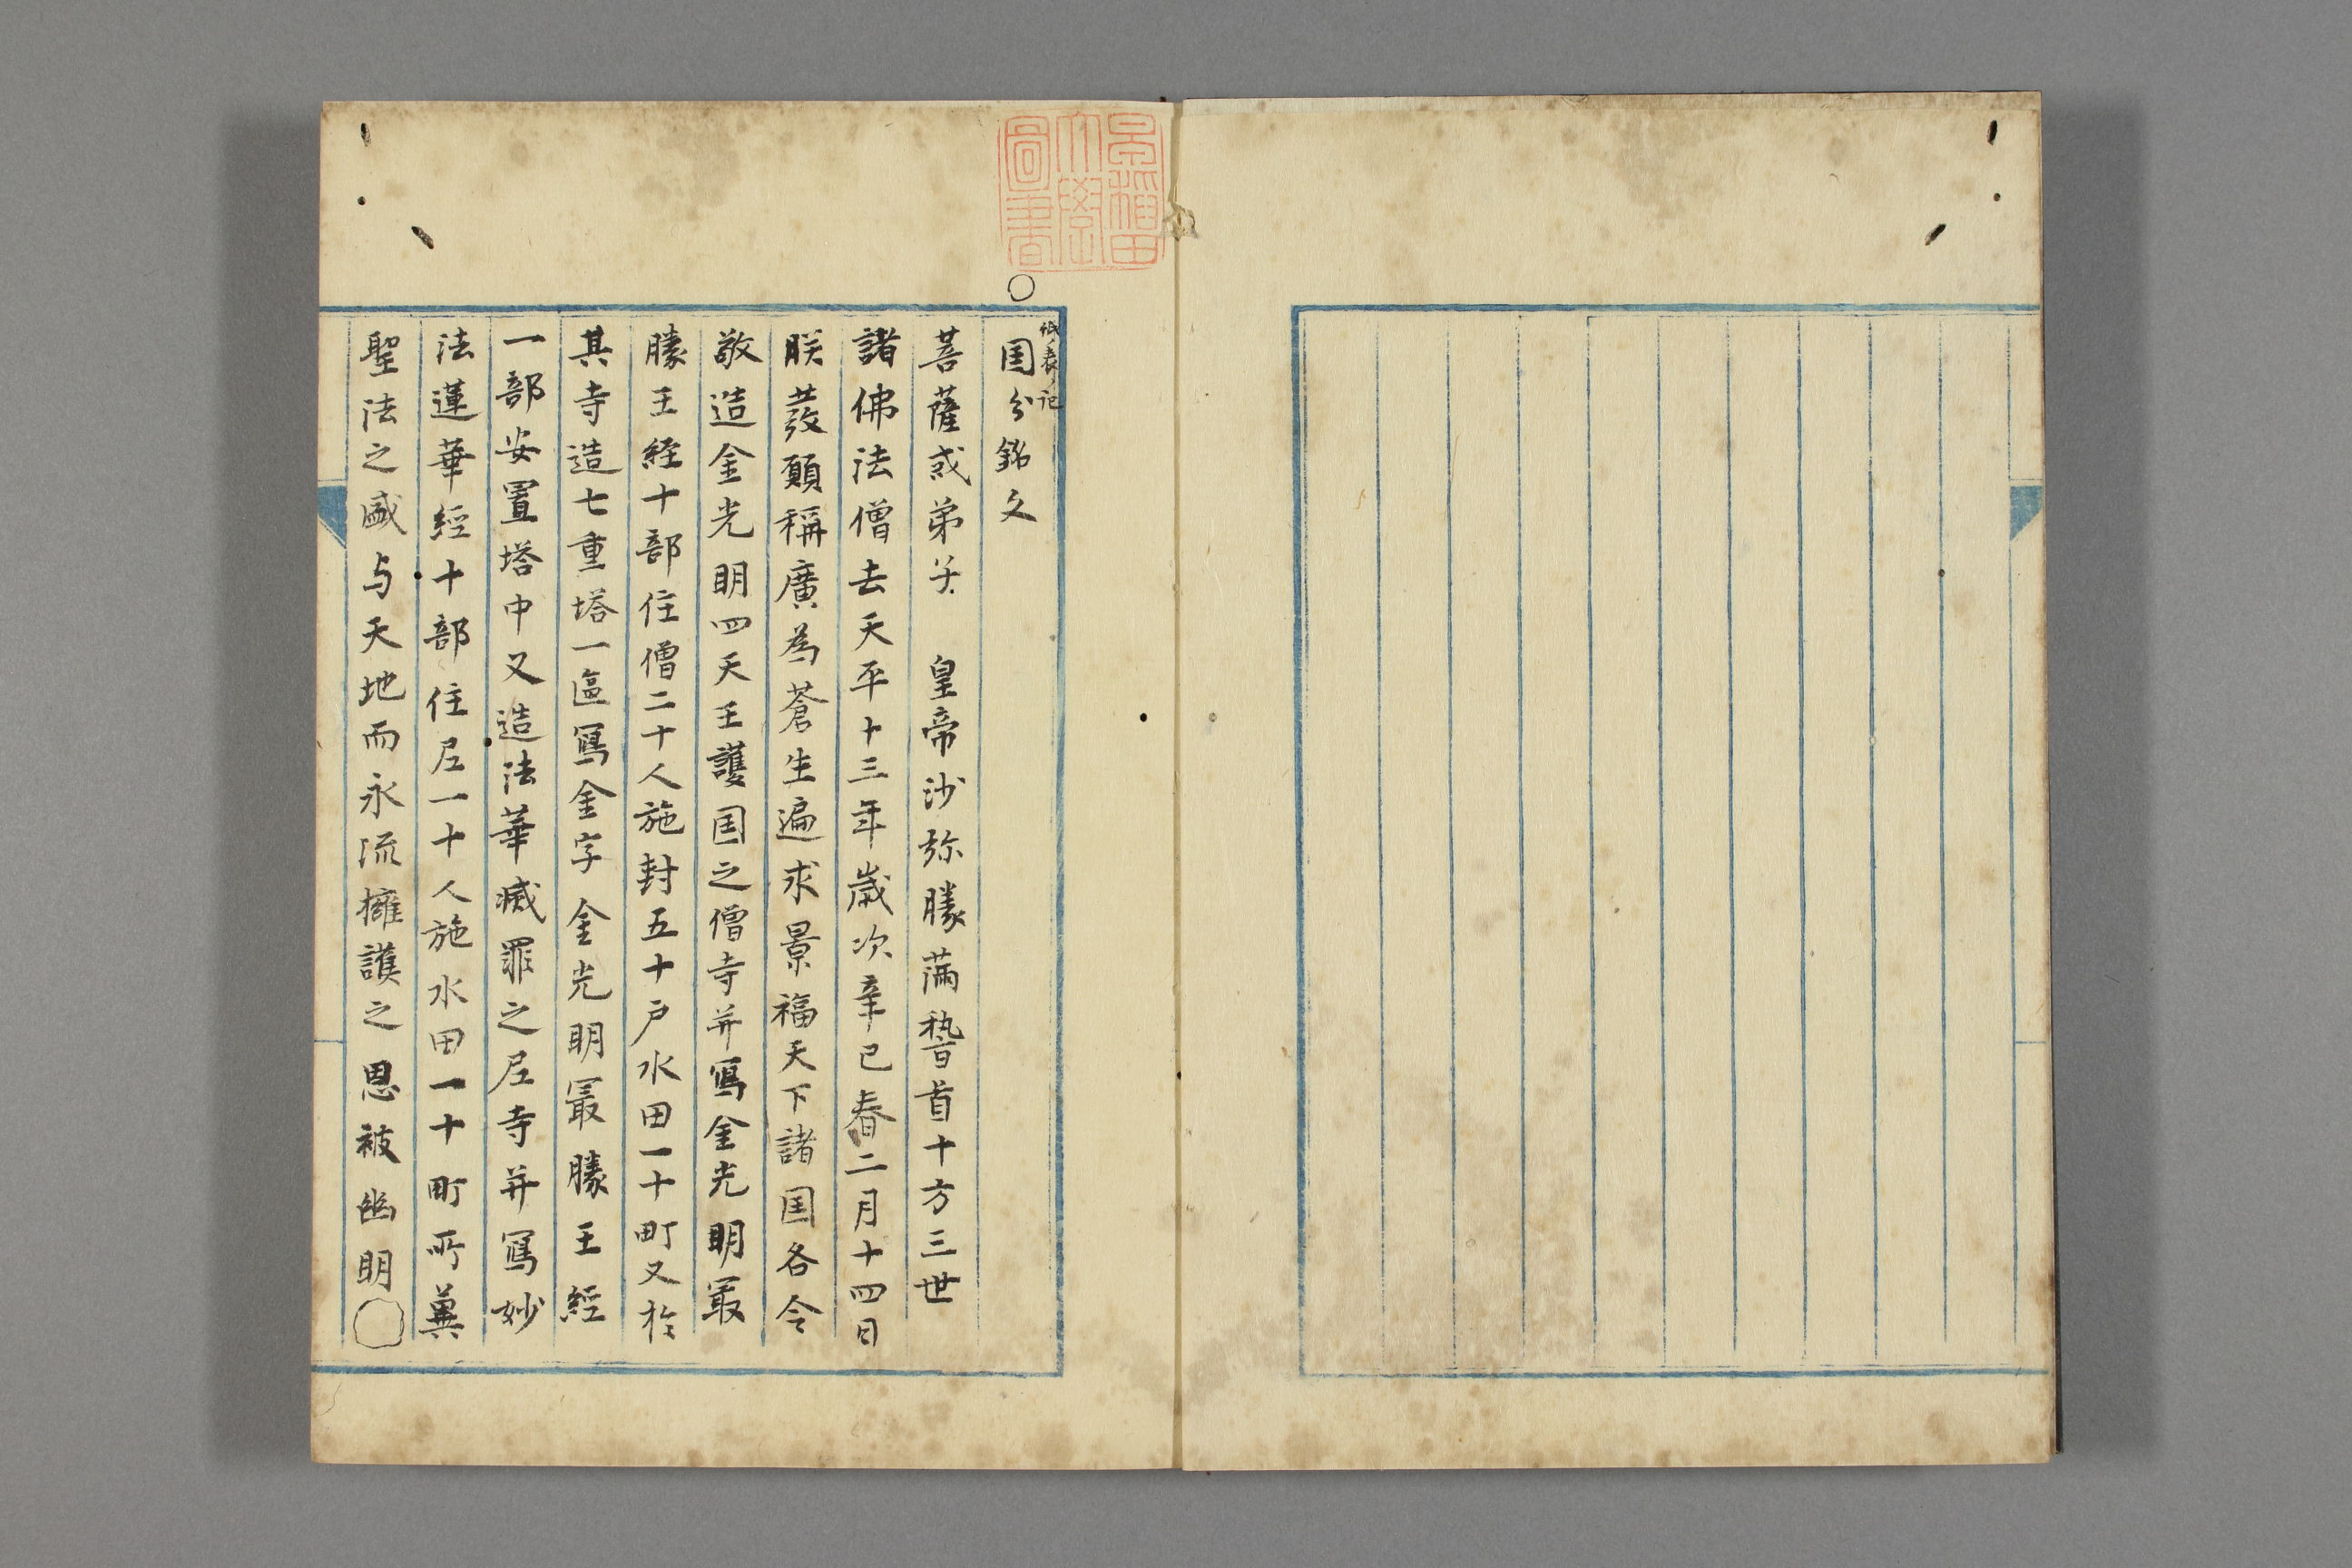 早稲田
大學
圖書
○
紙ノ表ノ記
国分銘文
菩薩戒弟子　皇帝沙弥勝満稽首十方三世
諸佛法僧去天平十三年歳次辛巳春二月十四日
朕發願稱廣為蒼生遍求景福天下諸国各令
敬造金光明四天王護国之僧寺并寫金光明冣
勝王経十部住僧二十人施封五十戸水田一十町又於
其寺造七重塔一區寫金字金光明冣勝王經
一部安置塔中又造法華滅罪之尼寺并寫妙
法蓮華經十部住尼一十人施水田一十町所冀
聖法之盛与天地而永流擁護之恩被幽明○